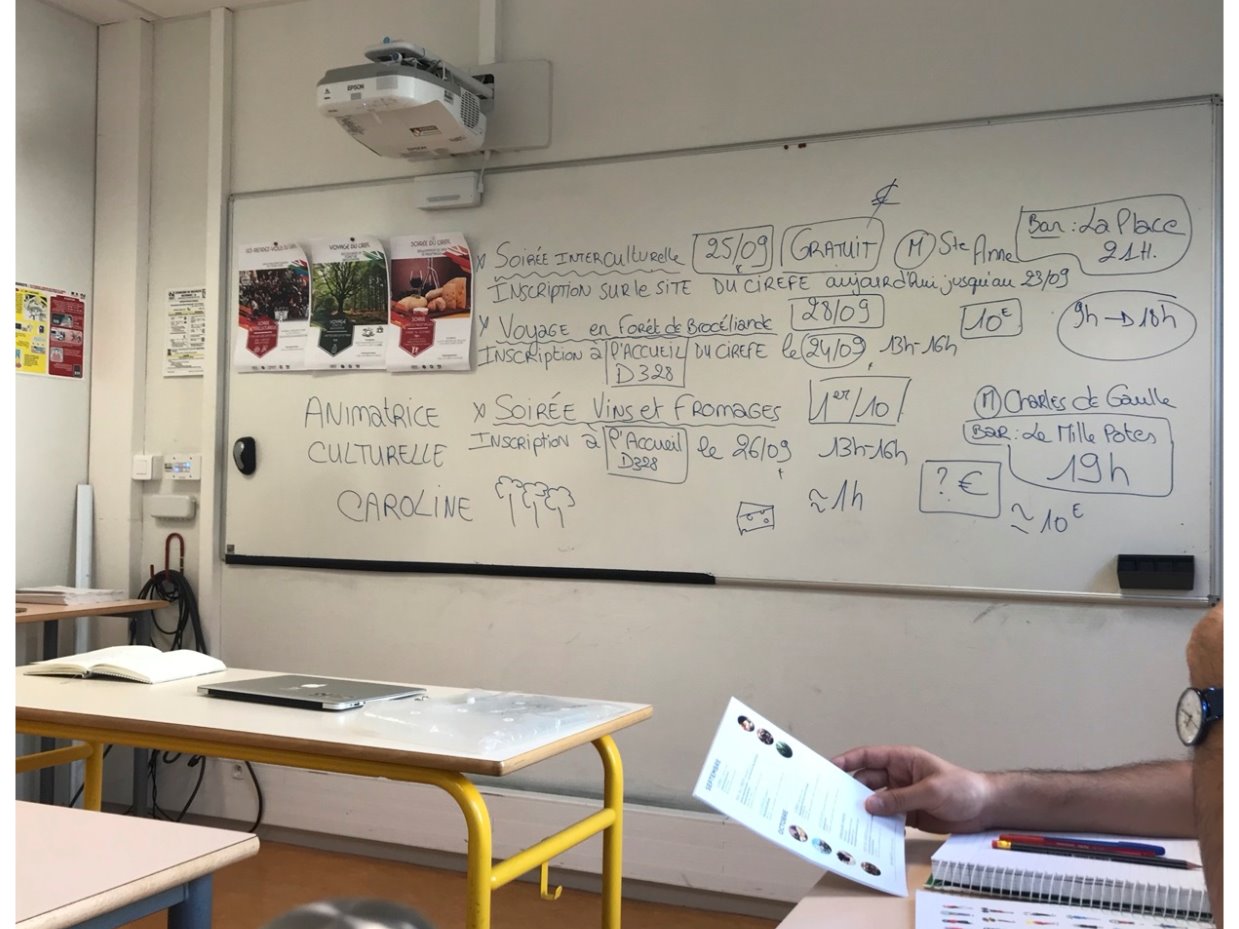 EPSON
EPSON
VOYAGE DU CIREFE
SOIRÉE DU CIREFE
SOIRÉE
VOYAGE
SOIRÉE
x SOIRÉE INTERCULTURELLE 25/09 GRATUIT M Ste Anne Bar : La Place 21H.
INSCRIPTION SUR LE SITE DU CIREFE aujourd'hui jusqu'au 23/09
x VOYAGE en Forêt de Brocéliande 28/09 10€ 9h → 18h
INSCRIPTION à l'ACCUEIL D328 DU CIREFE le 24/09 13h-16h
x SOIRÉE VINS et FROMAGES 1er/10 M Charles de Gaulle
INSCRIPTION à l'Accueil D328 le 26/09 13h-16h BAR : Le Mille Potes 19h
≈ 1h ? € ≈ 10€
ANIMATRICE
CULTURELLE
CAROLINE
SEPTEMBRE
OCTOBRE